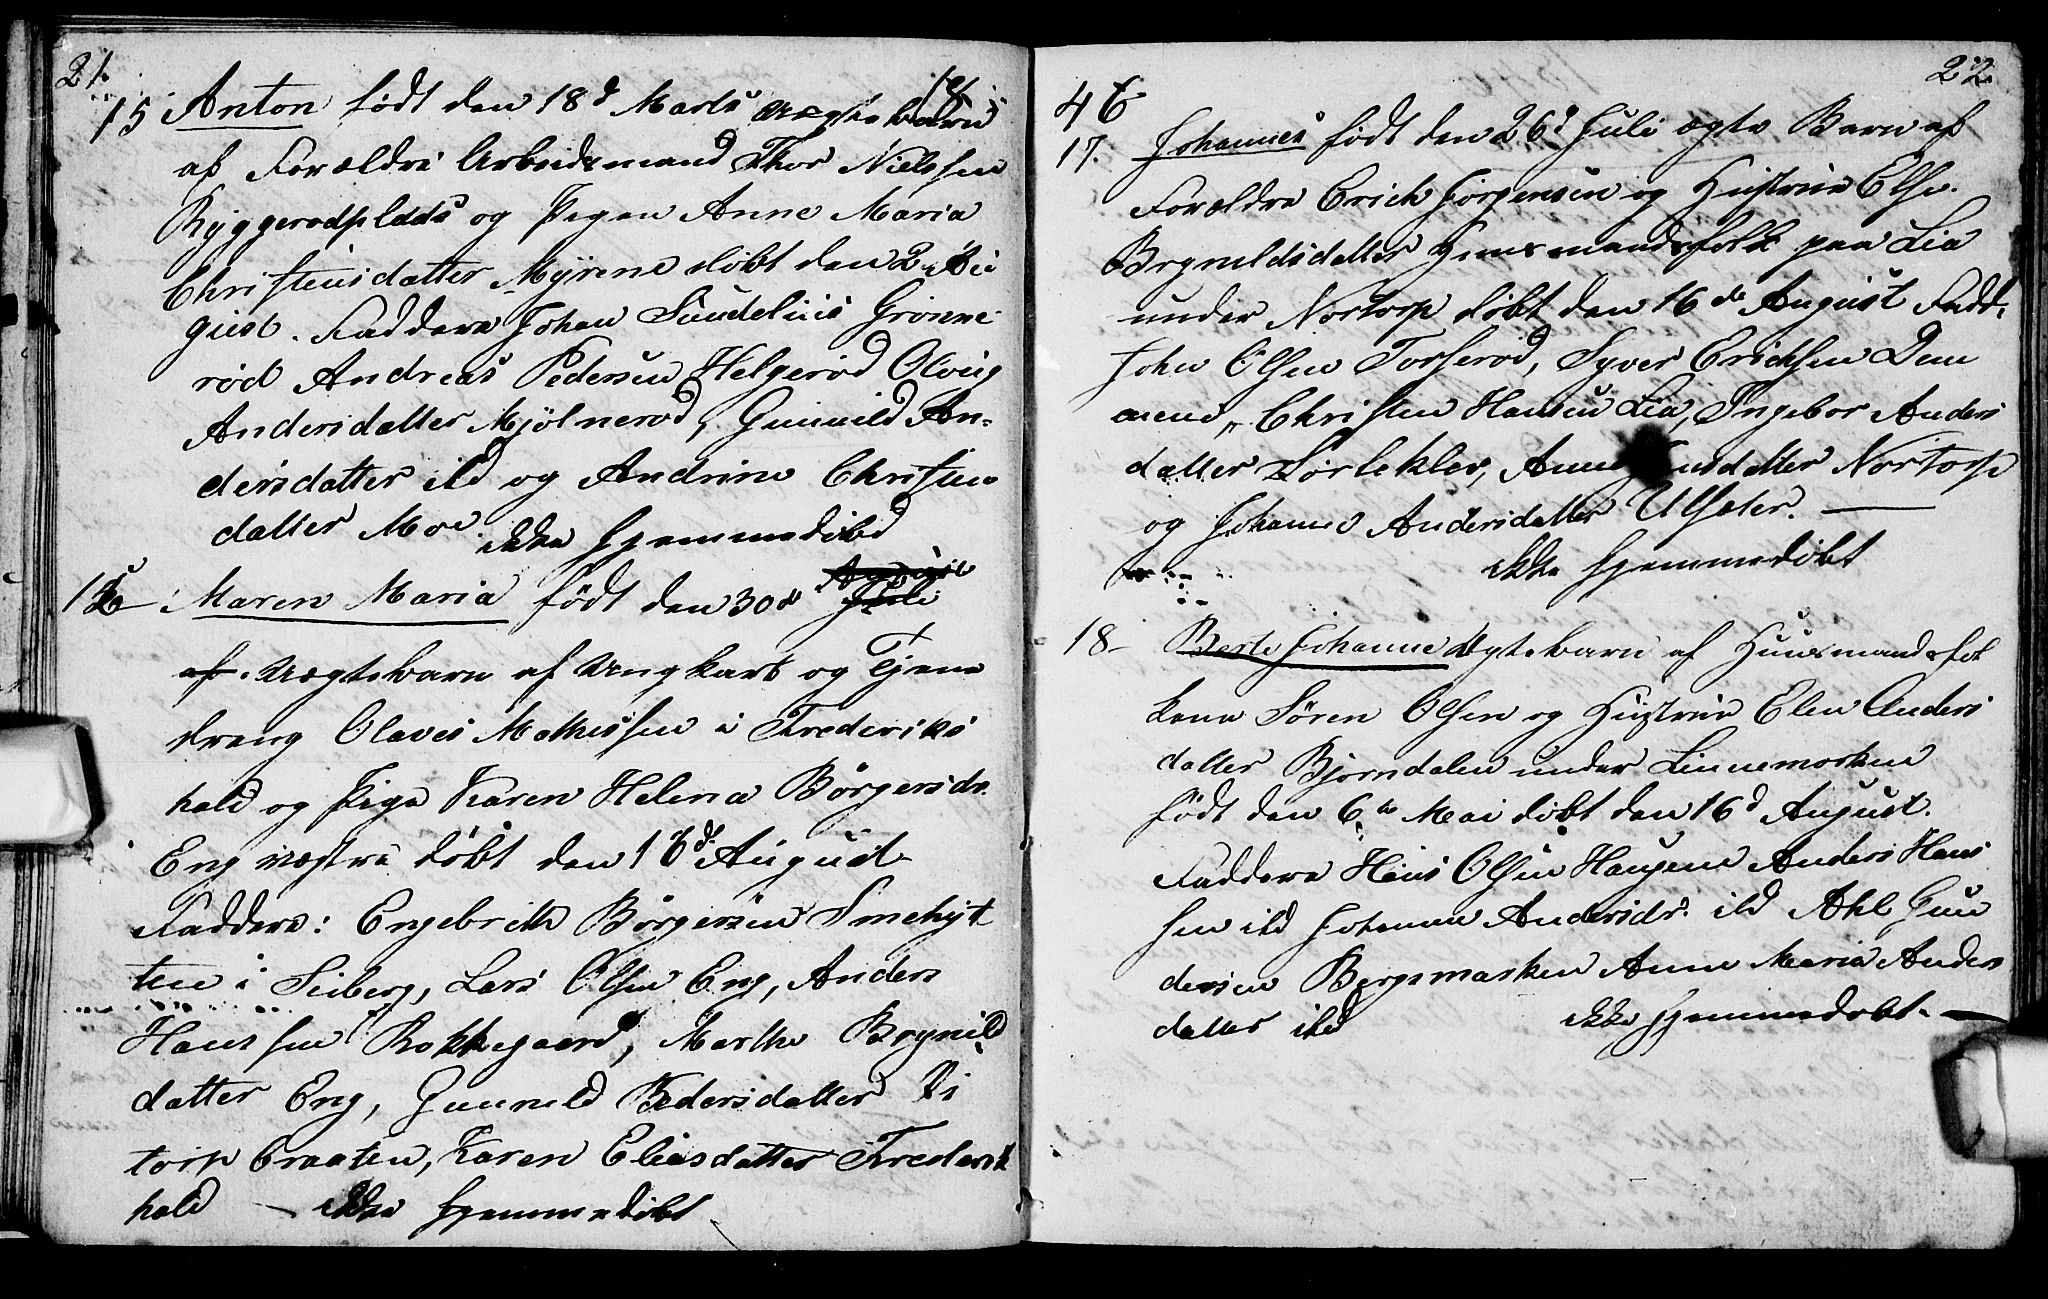 21.
18
15 Anton født den 18d Marts uægte barn
af Forældre Arbeidsmand Thor Nielssen
Ryggerødplads og Pigen Anne Maria
Christensdatter Myrene døbt den 2 Au
gust. Faddere Johan Grönne
rød Andreas Pedersen Helgerød Olvig
Andersdatter Mjölnerød, Gunild An-
dersdatter ild og Andrine Christen
datter Moe ikke hjemmedöbt
16 Maren Maria født den 30d Juli
af uægtebarn af Ungkarl og Tjene
dreng Olaves Mathissen i Frederiks
hald og Pige Karen Helena Börgersdr.
Eng vestre döbt den 16d August
Faddere: Engebreth Börgersen Smehyt
ten i Lars Olsen Eng, Anders
Hanssen Rokkegaard, Marthe Brynild
datter Eng, Gunnild Pedersdatter Di
torp braaten, Karen Eliasdatter Frederik
hald ikke hjemmedöbt
22.
46
17. Johannes født den 26d Juli ægte Barn af
Forældre Erich Jörgensen og Hustrue Else
Brynildsdatter Huusmandsfolk paa Lia
under Nortorp döbt den 16de August Fadd.
John Olsen Torserød, Syver Erichsen Dam
mene, Christen Hansen Lia, Ingebor Anders
datter Sörleklev, Anne datter Nortorp
og Johanne Andersdatter Ulsæter.
ikke hjemmedöbt
18 Berte Johanne Ægtebarn af Huusmandsfol
kene Sören Olsen og Hustrue Elen Anders
datter Bjørndalen under Linnemorken
født den 6te Mai döbt den 16d August.
Faddere Hans Olsen Haugene Anders Hans
sen ild Johanne Andersdr. ild Axl Gun
dersen Bergsmarken Anne Maria Anders
datter ild ikke hjemmedobt.